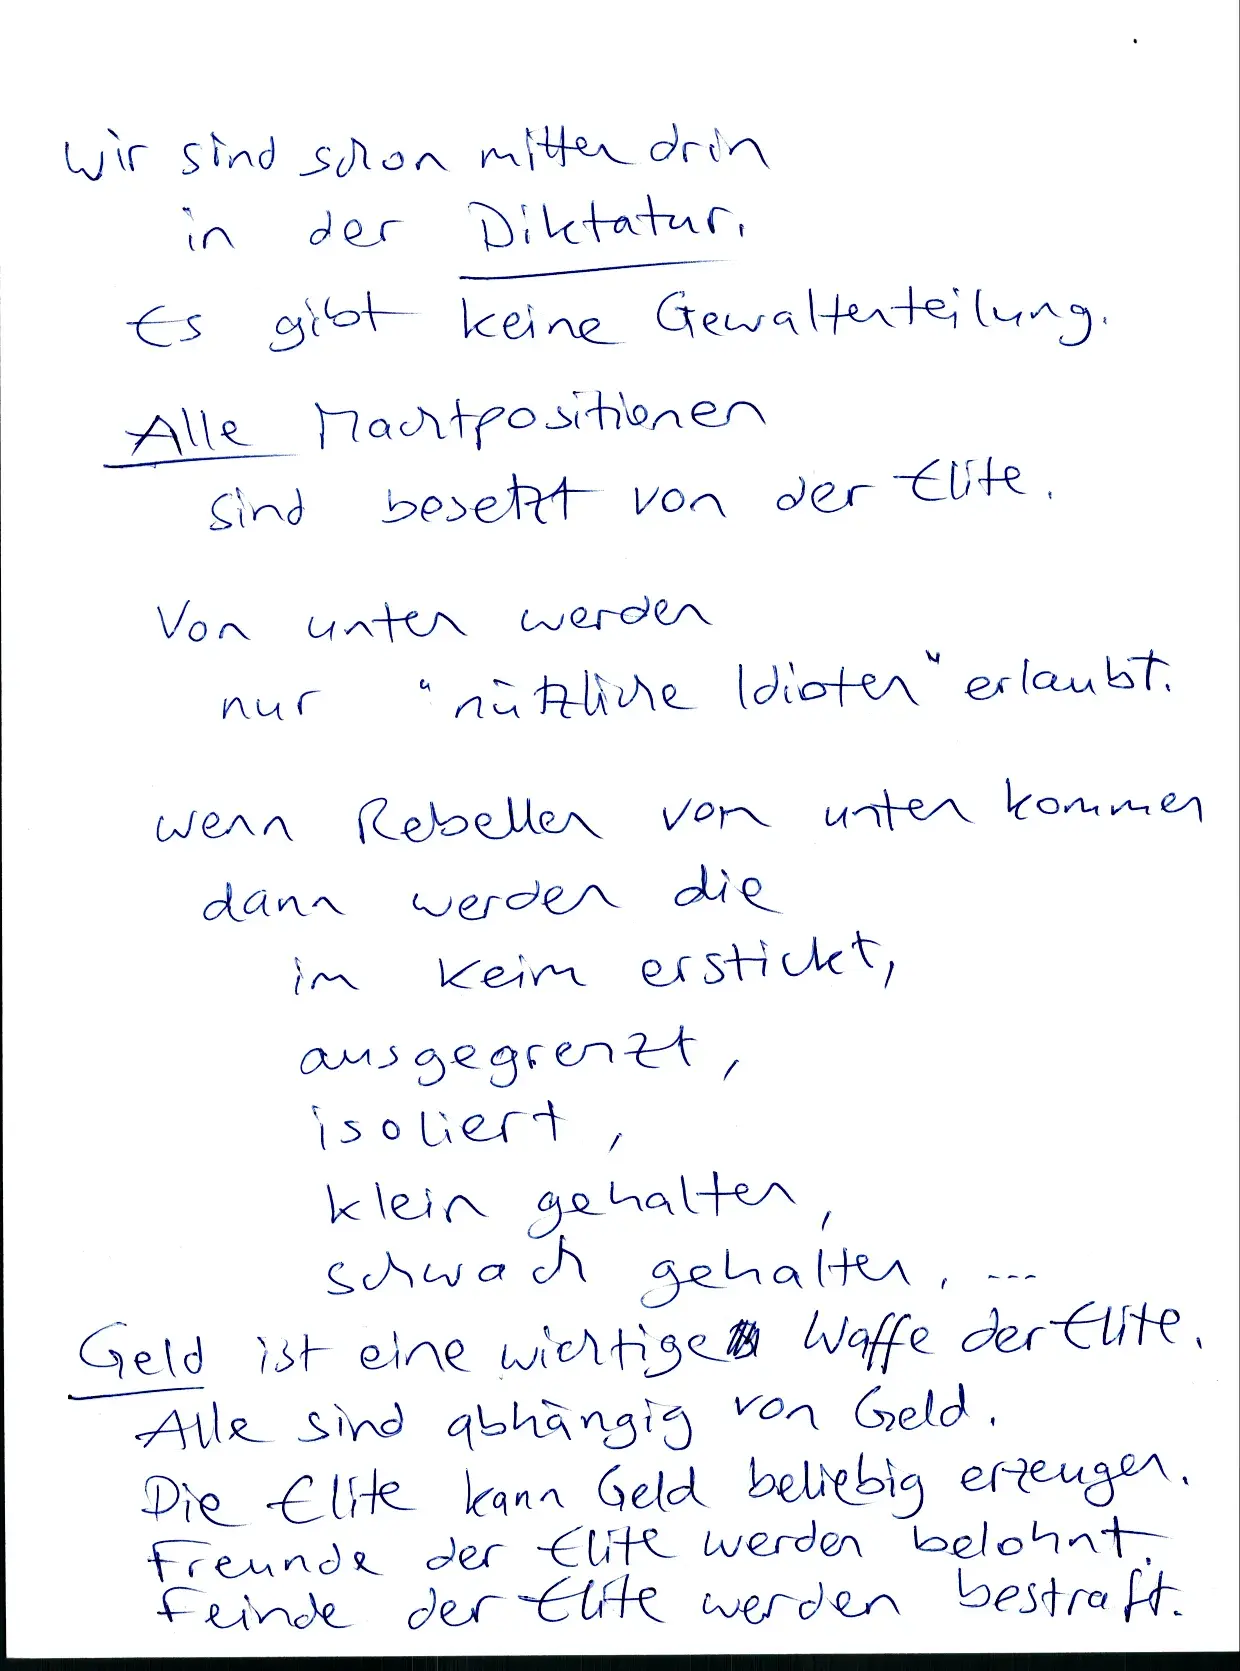 wir sind schon mitten drin
in der Diktatur.
Es gibt keine Gewaltenteilung.
Alle Machtpositionen
sind besetzt von der Elite.
Von unten werden
nur "nützliche Idioten" erlaubt.
wenn Rebellen von unten kommen
dann werden die
im Keim erstickt,
ausgegrenzt,
isoliert,
klein gehalten,
schwach gehalten, ...
Geld ist eine wichtige Waffe der Elite.
Alle sind abhängig von Geld.
Die Elite kann Geld beliebig erzeugen.
Freunde der Elite werden belohnt.
Feinde der Elite werden bestraft.